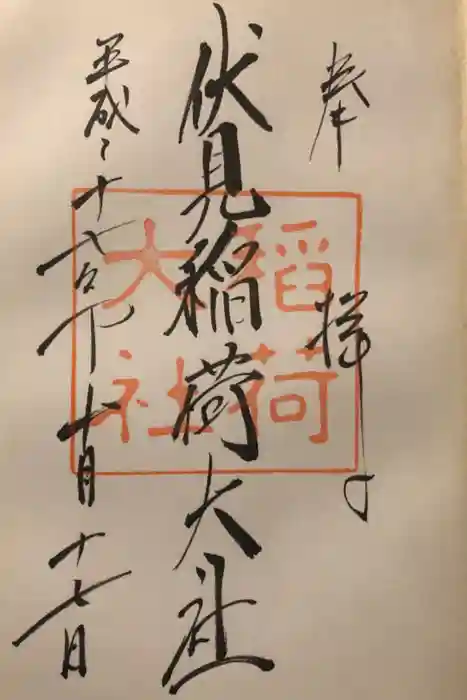 奉拝
伏見稲荷大社
平成二十八年十月十七日
稲荷
大社